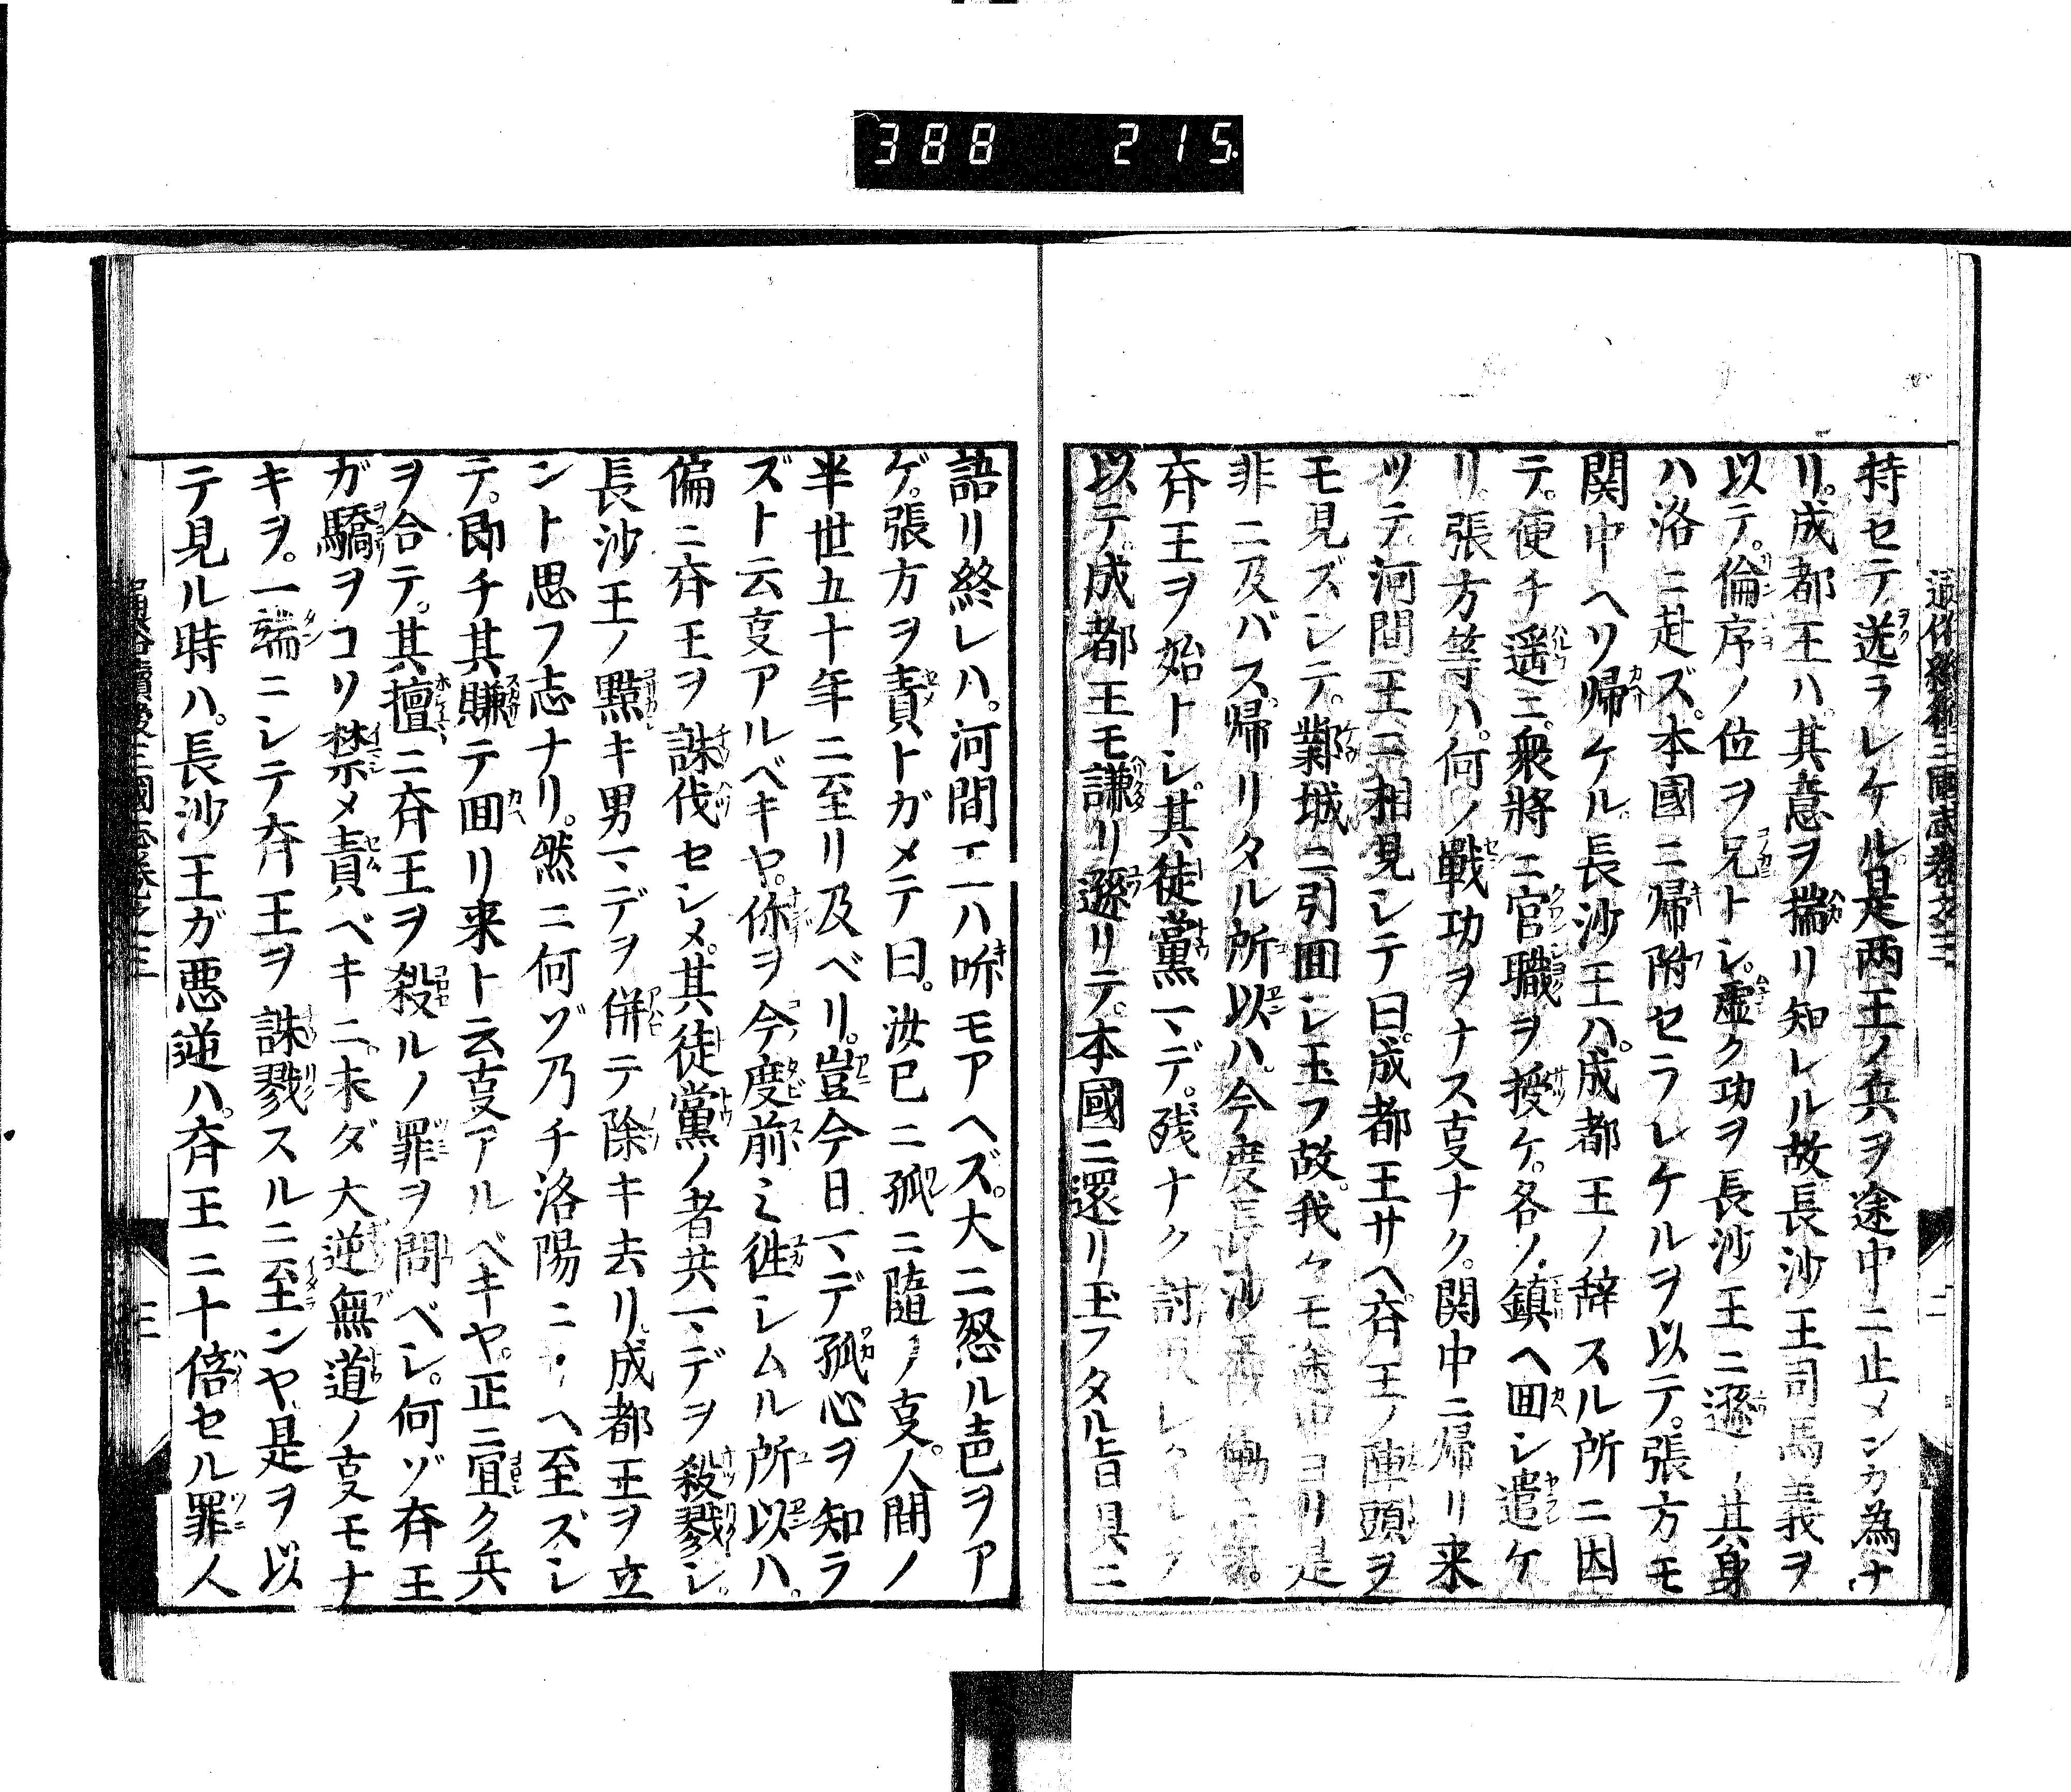 388 215.
持セテ送ラレケル。是両王ノ兵ヲ途中ニ止メンカ為ナ
リ。成都王ハ。其意ヲ揣リ知レル故長沙王司馬義ヲ
以テ。倫序ノ位ヲ兄トシ。虚ク功ヲ長沙王ニ遜リ其身
ハ洛ニ赴ズ。本國ニ帰附セラレケルヲ以テ。張方モ
関中ヘリ帰ケル。長沙王ハ。成都王ノ辞スル所ニ因
テ。便チ遥ニ。衆將ニ官職ヲ授ケ。各ソ鎮ヘ回シ遣ケ
リ。張方等ハ。何ノ戰功ヲナス叓ナク。関中ニ帰リ来
ツテ河間王ニ相見シテ曰。成都王サヘ。斉王ノ陣頭ヲ
モ見ズシテ。鄴城ニ引回シ玉フ故。我々モ途中ヨリ是
非ニ及バス。帰リタル所以ハ。今度長沙
斉王ヲ始トシ。其徒黨マデ。残ナク討
以テ。成都王モ謙リ遜リテ。本國ニ還リ玉フタル旨具ニ
語リ終レハ。河間王ハ听モアヘズ。大ニ怒ル色ヲア
ゲ。張方ヲ責トガメテ曰。汝已ニ孤ニ隨ノ叓。人間ノ
半世五十年ニ至リ及ベリ。豈今日マデ孤心ヲ知ラ
ズト云叓アルベキヤ。你ヲ今度前ミ徃シムル所以ハ。
偏ニ斉王ヲ誅伐セシメ。其徒黨ノ者共マデヲ殺戮シ。
長沙王ノ黠キ男マデヲ併テ除キ去リ。成都王ヲ立
ント思フ志ナリ。然ニ何ゾ乃チ洛陽ニヘ至ズシ
テ。即チ其賺テ回リ来ト云叓アルベキヤ。正ニ宜ク兵
ヲ合テ。其擅ニ斉王ヲ殺ルノ罪ヲ問ベシ。何ゾ斉王
ガ驕ヲコリ禁メ責ベキニ。未ダ大逆無道ノ叓モナ
キヲ。一端ニシテ斉王ヲ誅戮スルニ至ンヤ。是ヲ以
テ見ル時ハ。長沙王ガ悪逆ハ。斉王ニ十倍セル罪人
三